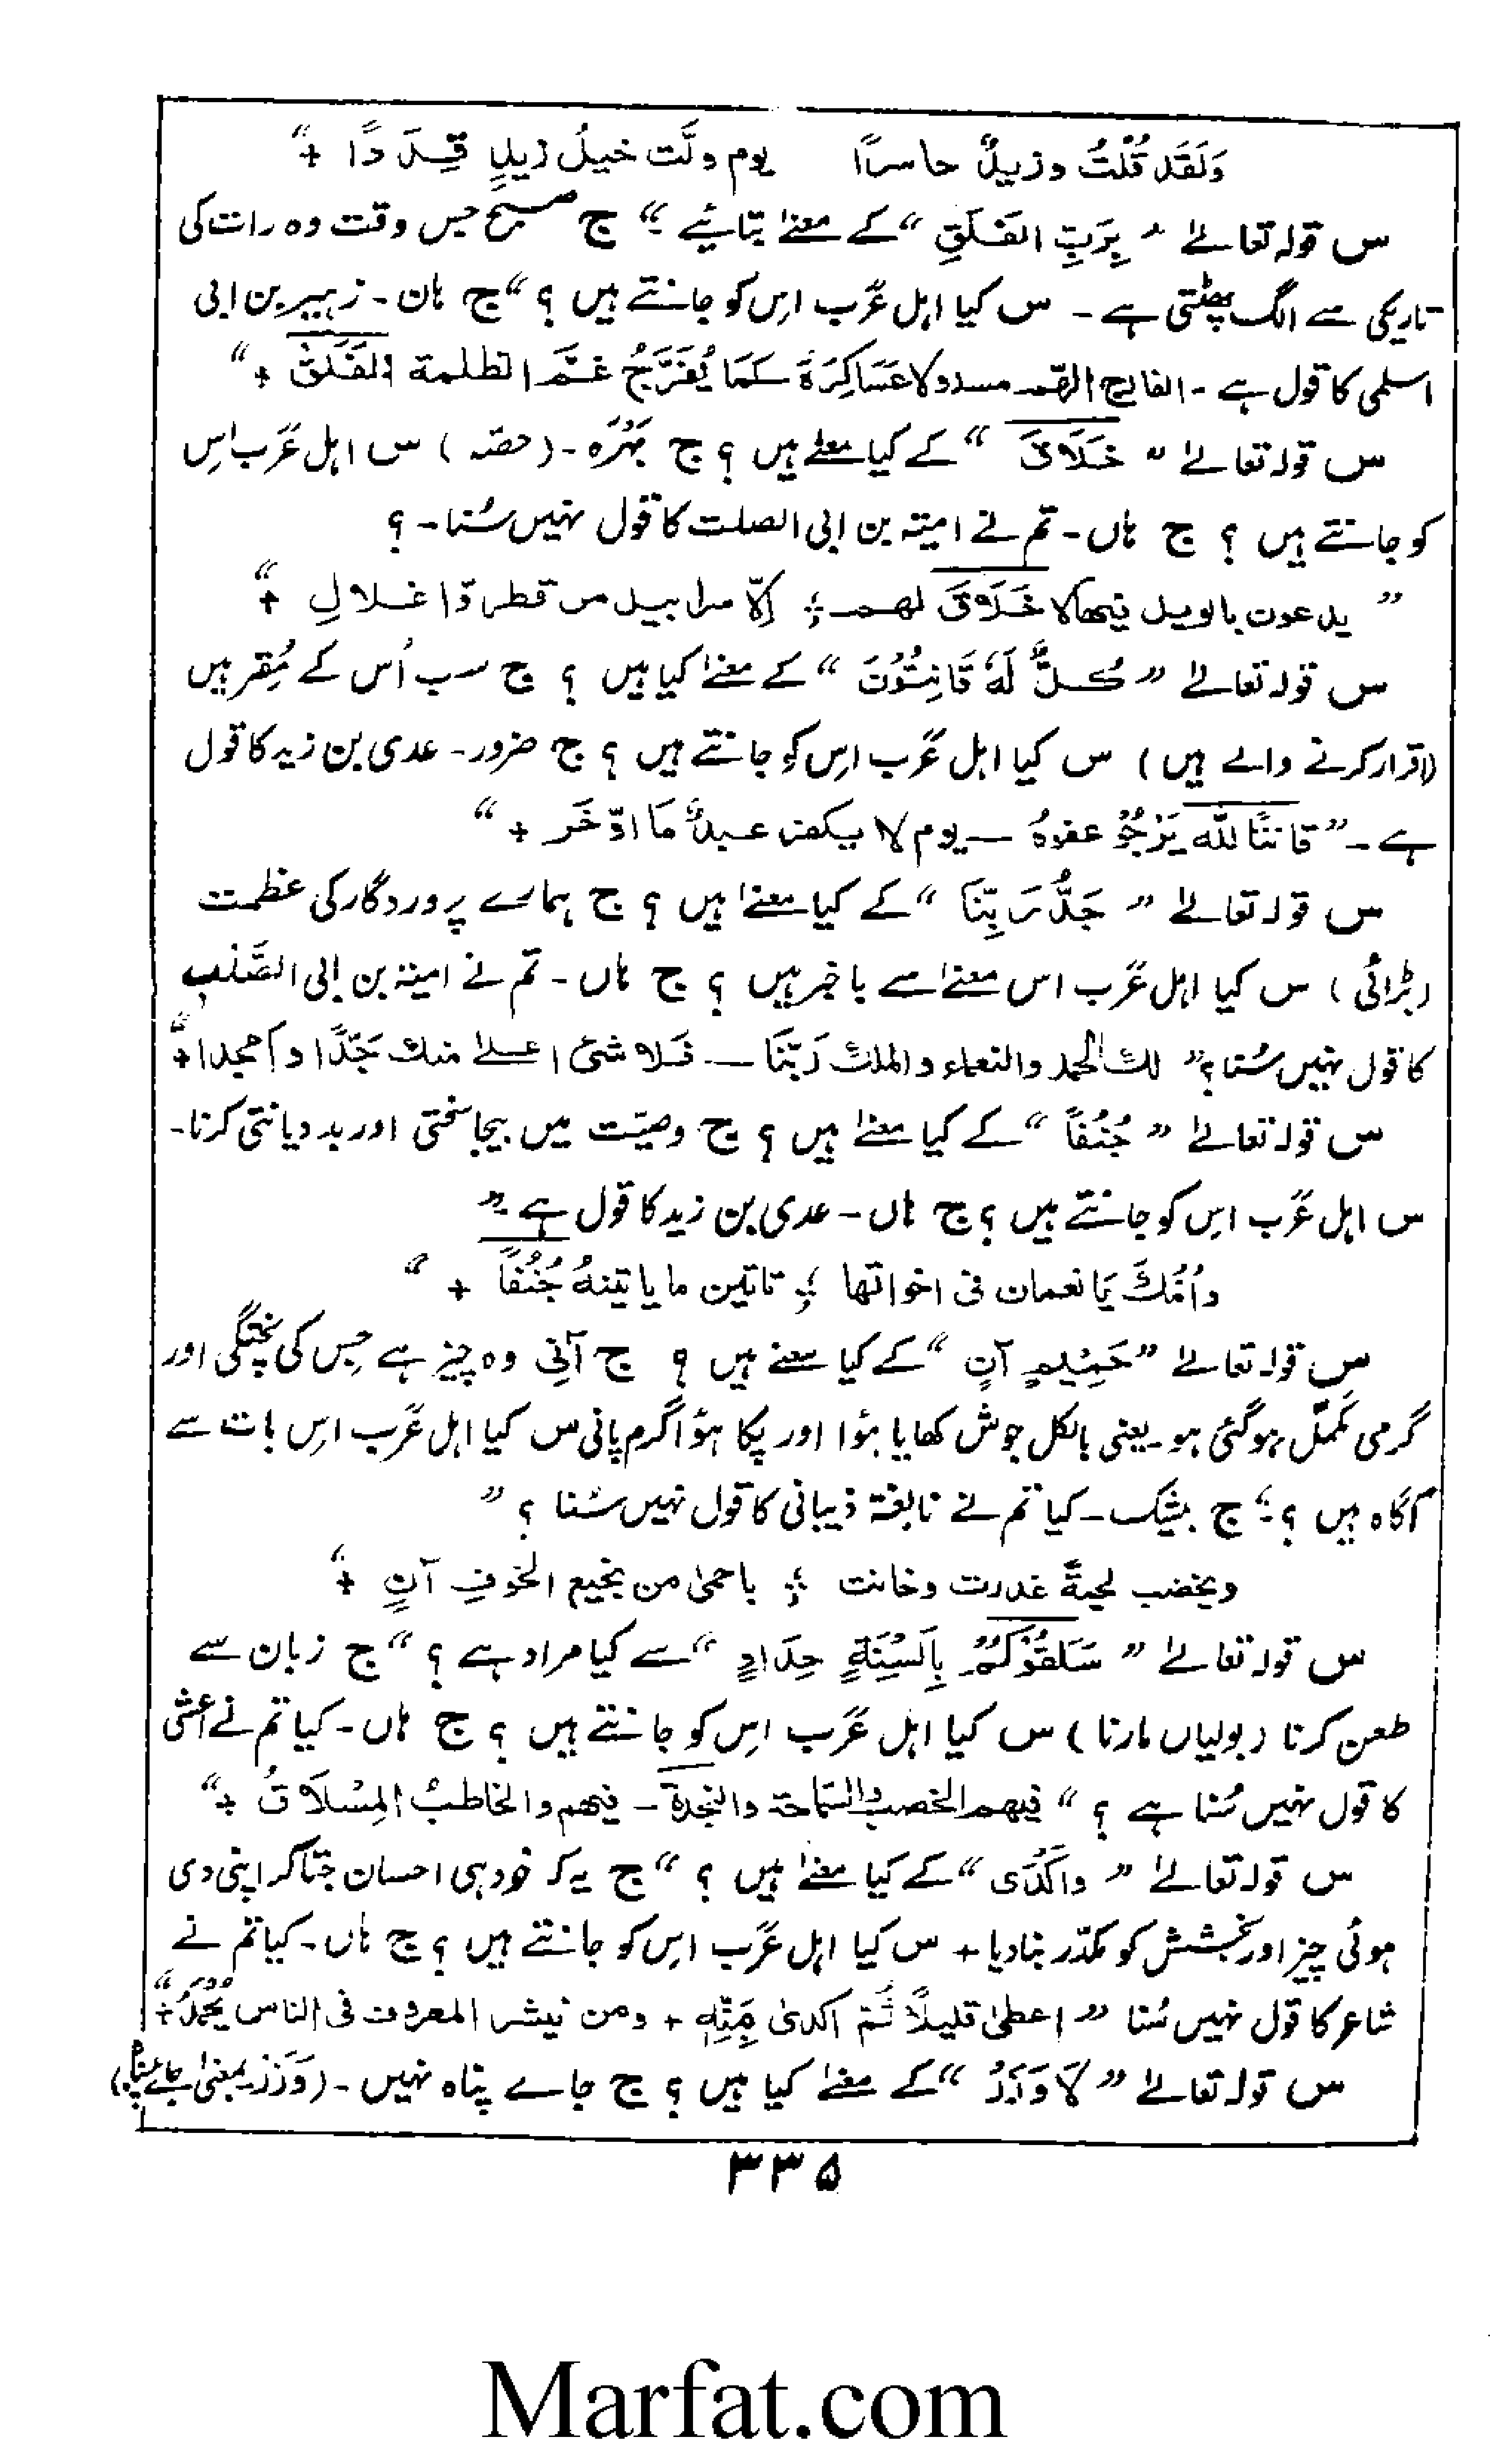 وَلَقَد قُلْتُ وزیدٌ حاسرًا یوم ولَّت خیلُ زیدٍ قِدَدًا +“
س قولہ تعالےٰ ” بِرَبِّ الفَلَقِ “ کے معنےٰ بتائیے ؟“ ج صبح جس وقت وہ رات کی
تاریکی سے الگ پھٹتی ہے ۔ س کیا اہل عَرب اِس کو جانتے ہیں ؟“ ج ہان ۔ زہیر بن ابی
اسلمی کا قول ہے ۔ الفارج الھَم مسدولا عَسَاکِرَہٗ کَمَا یُفَرَّجُ غَمَّ الظلمة الفَلَقُ +“
س قولہ تعالےٰ ” خَلَاق “ کے کیا معنےٰ ہیں ؟ ج بَہْرَہ ۔ (حصّہ) س اہل عَرب اِس
کو جانتے ہیں ؟ ج ہاں ۔ تم نے امیّہ بن ابی الصلت کا قول نہیں سُنا ۔ ؟
” یدعون بالویل فیھا لا خَلَاقَ لھم ؛ اِلّا سرابیل من قطر وّا غلالِ +“
س قولہ تعالےٰ ” کُلٌّ لَهٗ قَانِتُوْنَ “ کے معنےٰ کیا ہیں ؟ ج سب اُس کے مُقِر ہیں
(اقرار کرنے والے ہیں) س کیا اہل عَرب اِس کو جانتے ہیں ؟ ج ضرور ۔ عدی بن زید کا قول
ہے ۔ ” قانتًا للہ یَرْجُوْ عفوہٗ — یوم لا یکفر عبدٌ مَا ادّخَر +“
س قولہ تعالےٰ ” جَدُّ رَبِّنَا “ کے کیا معنےٰ ہیں ؟ ج ہمارے پروردگار کی عظمت
(بڑائی) س کیا اہل عَرب اس معنےٰ سے باخبر ہیں ؟ ج ہاں ۔ تم نے امیّہ بن ابی الصَّلت
کا قول نہیں سُنا ؟” لك الحمد والنعماء والملك رَبَّنَا — فلا شئ اعلےٰ منك جَدًّا وامجدا +“
س قولہ تعالےٰ ” جُنُفًا “ کے کیا معنےٰ ہیں ؟ ج وصیّت میں بیجا سختی اور بددیانتی کرنا ۔
س اہل عَرب اِس کو جانتے ہیں ؟ ج ہاں ۔ عدی بن زید کا قول ہے ۔”
وَاُمُّكَ یَا نعمان فی اخواتھا ؛ تاتین ما یاتینهُ جُنُفًا + “
س قولہ تعالےٰ ” حَمِیْمٍ آنٍ “ کے کیا معنےٰ ہیں ؟ ج آنِی وہ چیز ہے جِس کی پختگی اور
گرمی مکمّل ہو گئی ہو ۔ یعنی بالکل جوش کھایا ہؤا اور پکا ہؤا گرم پانی س کیا اہل عَرب اِس بات سے
آگاہ ہیں ؟“ ج بیشک ۔ کیا تم نے نابغۃ ذیبانی کا قول نہیں سُنا ؟ ”
ویخضب لحیةً غدرت وخانت ؛ باحمیٰ من نجیع الخوف آنٍ +“
س قولہ تعالےٰ ” سَلَقُوْکُمْ بِاَلْسِنَةٍ حِدَادٍ “ سے کیا مراد ہے ؟“ ج زبان سے
طعن کرنا (بولیاں مارنا) س کیا اہل عَرب اِس کو جانتے ہیں ؟ ج ہاں ۔ کیا تم نے اعشی
کا قول نہیں سُنا ہے ؟ “ فیھم الخصب والسَّماحۃ والنجدۃ ۔ فیھم والخاطبُ المِسْلَاقُ +“
س قولہ تعالےٰ ” واَکْدَی “ کے کیا معنےٰ ہیں ؟“ ج یہ کہ خود ہی احسان جتا کر اپنی دی
ہوئی چیز اور بخشش کو مکدّر بنا دیا + س کیا اہل عَرب اِس کو جانتے ہیں ؟ ج ہاں ۔ کیا تم نے
شاعر کا قول نہیں سُنا ” اعطیٰ قلیلًا ثُم اکدیٰ بِمَنِّهٖ + ومن ینشر المعروف فی الناس یُحْمَدُ +“
س قولہ تعالےٰ ” لَا وَزَرَ “ کے معنےٰ کیا ہیں ؟ ج جاے پناہ نہیں ۔ (وَزَرْ بمعنیٰ جائے پناہ)
۳۳۵
Marfat.com